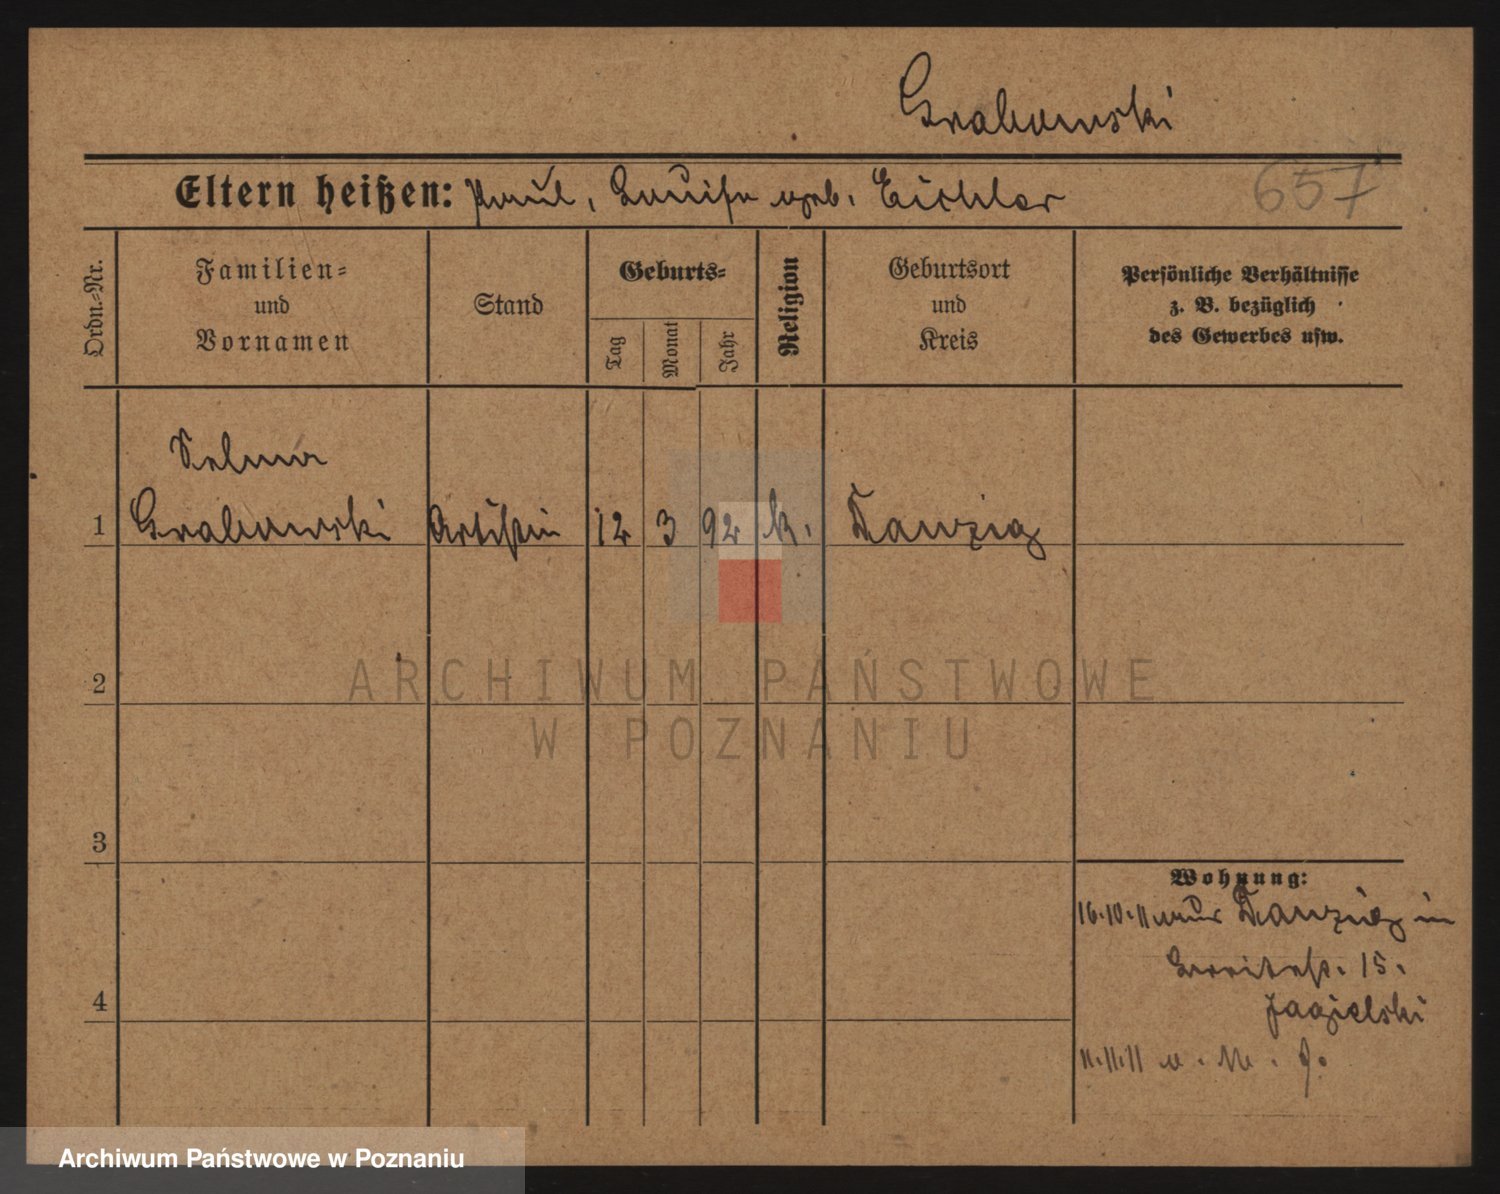 Grabowski
Eltern heißen: Paul, Louise geb. Eichler
657
Ordn.-Nr.
Familien-
und
Vornamen
Stand
Geburts-
Tag
Monat
Jahr
Religion
Geburtsort
und
Kreis
Persönliche Verhältnisse
z. B. bezüglich
des Gewerbes usw.
Selma
1 Grabowski Artistin 12 3 92 k. Danzig
2
3
4
Wohnung:
16.10.11 aus Danzig in
Breitestr. 15.
Jagielski
11.11.11
ARCHIWUM PAŃSTWOWE
W POZNANIU
Archiwum Państwowe w Poznaniu